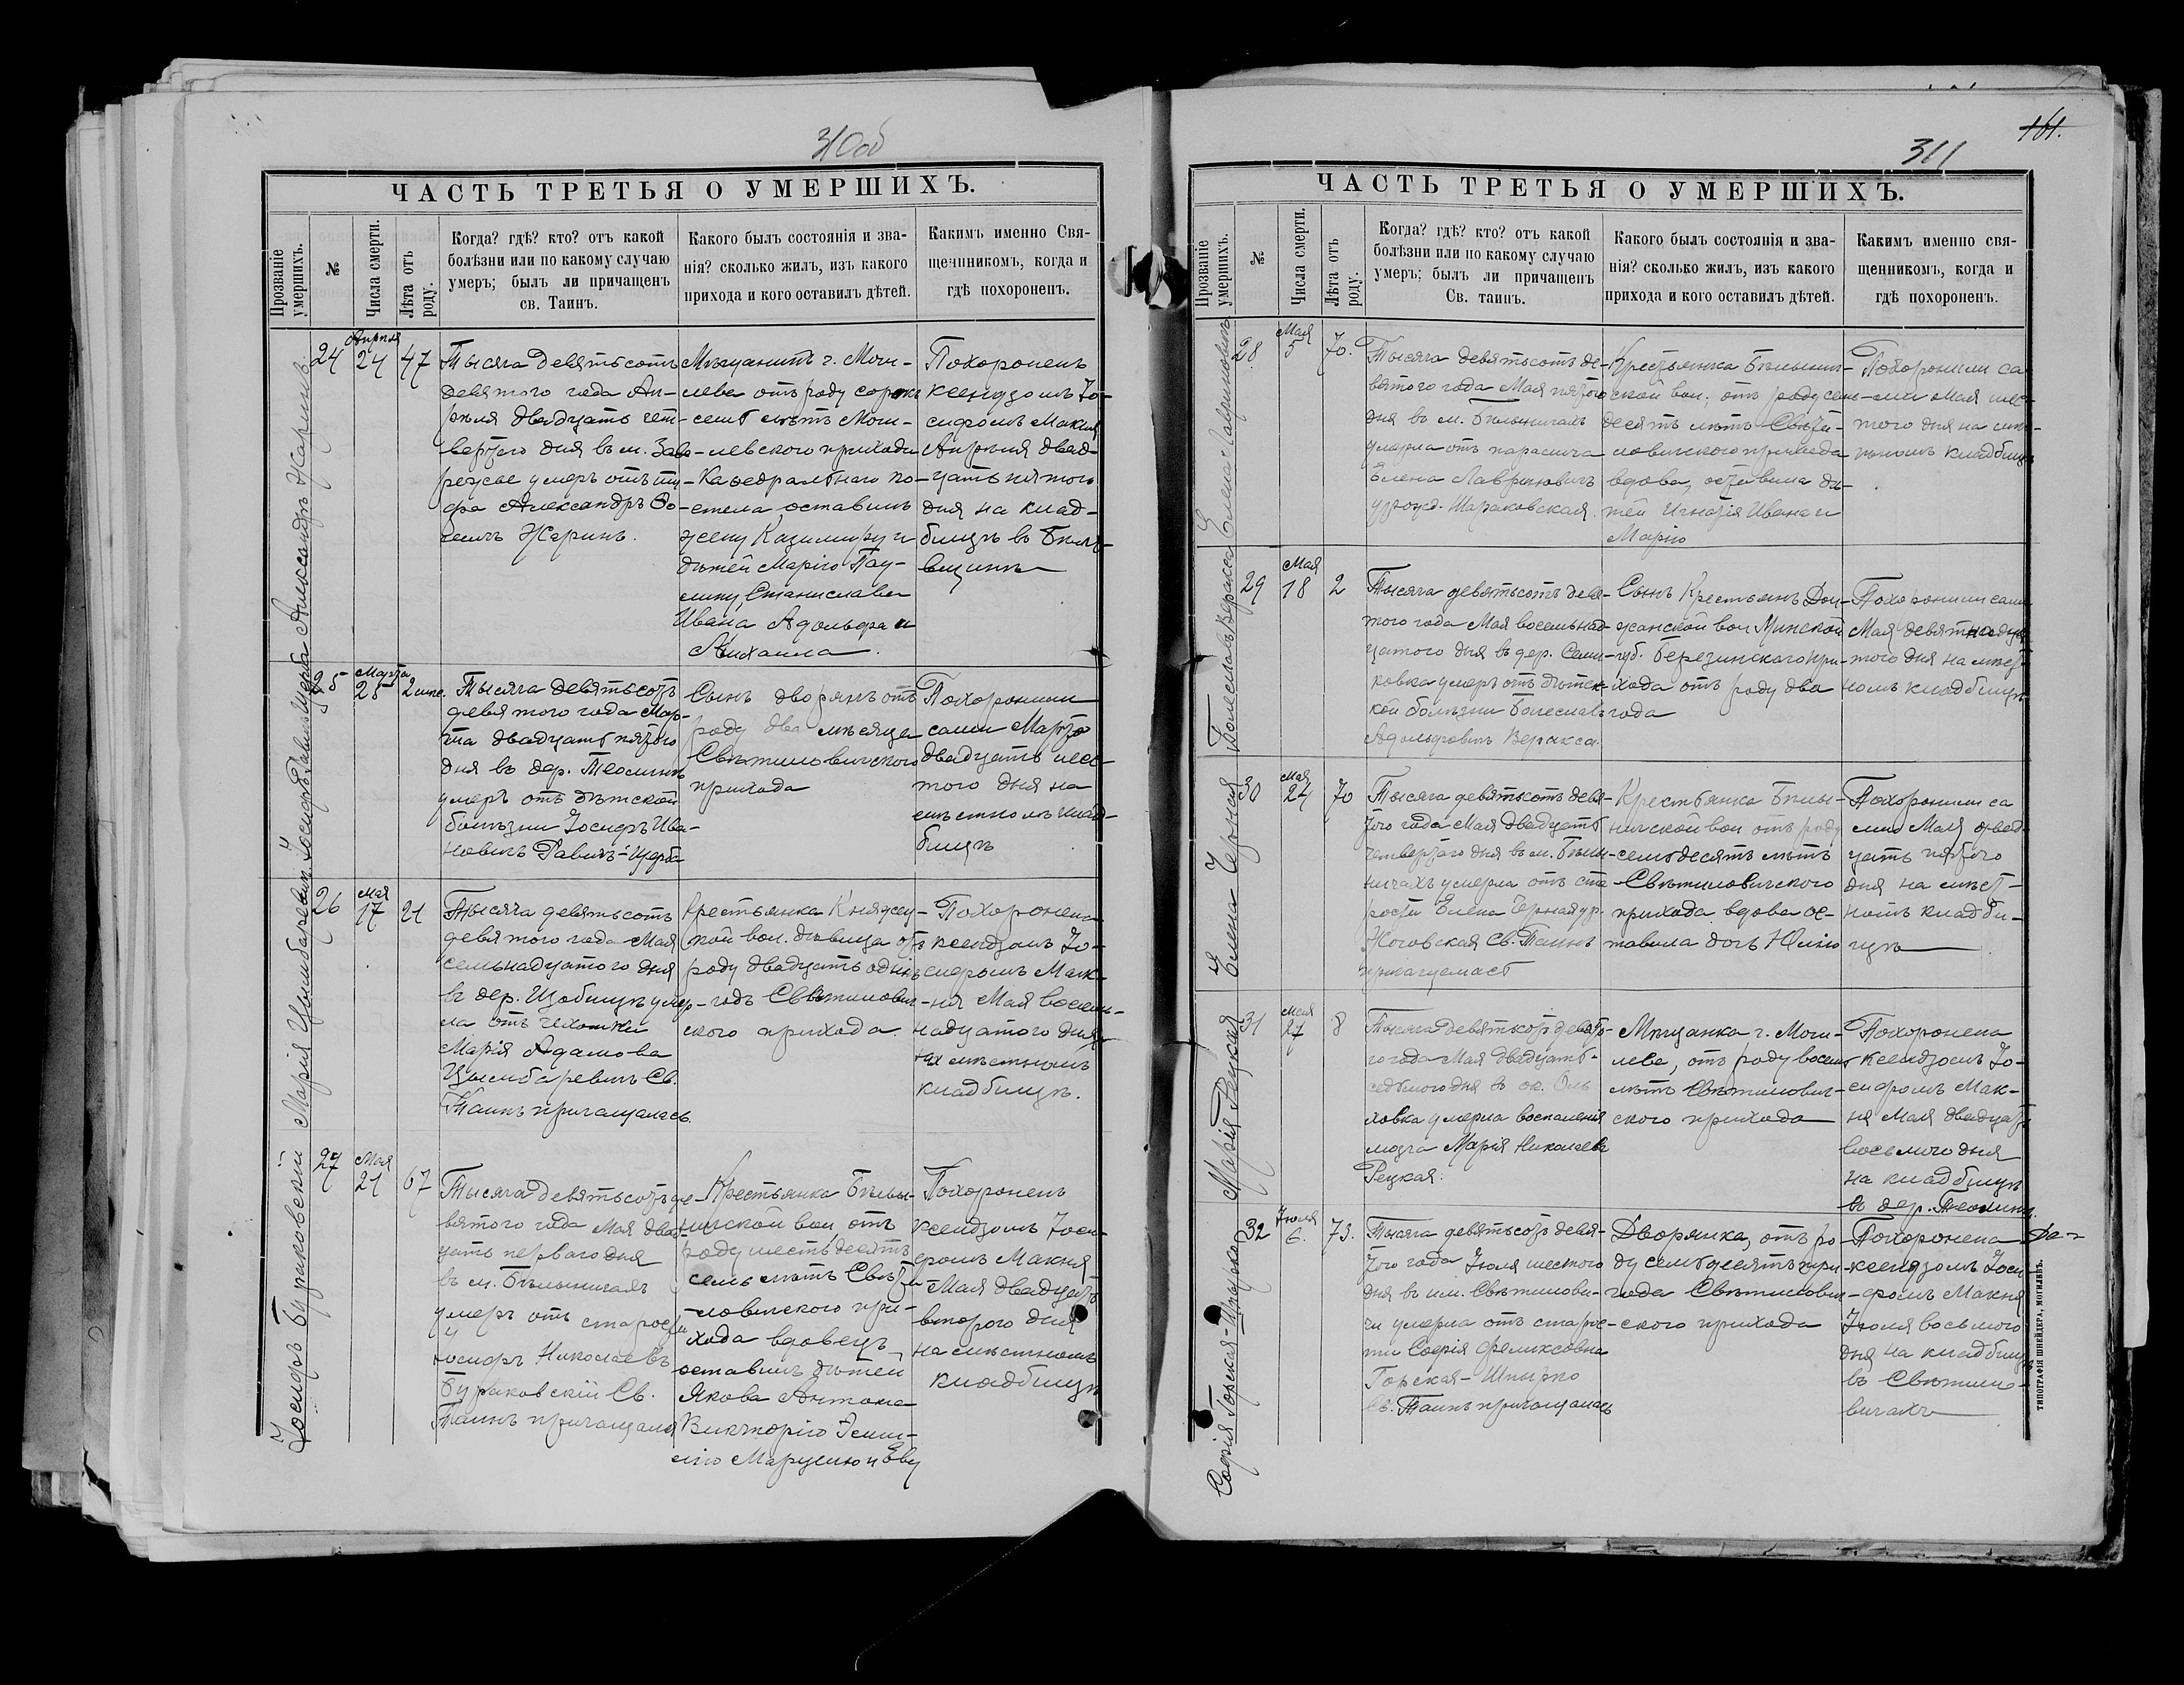 310об
ЧАСТЬ ТРЕТЬЯ О УМЕРШИХЪ.
Прозваніе умершихъ.
№
Числа смерти.
Лѣта отъ роду.
Когда? гдѣ? кто? отъ какой
болѣзни или по какому случаю
умеръ; былъ ли причащенъ
св. Таинъ.
Какого былъ состоянія и зва-
нія? сколько жилъ, изъ какого
прихода и кого оставилъ дѣтей.
Какимъ именно Свя-
щенникомъ, когда и
гдѣ похороненъ.
Александръ Жаринъ
24
Апрѣля
24
47
Тысяча девятьсотъ
девятого года Ап-
рѣля двадцать чет-
вертого дня въ м. Зао-
режье умеръ отъ ти-
фа Александръ Ѳо-
мичъ Жаринъ.
Мѣщанинъ г. Моги-
лева отъ роду сорокъ
семь лѣтъ Моги-
левского прихода
Каѳедральнаго ко-
стела оставилъ
жену Казимиру и
дѣтей Марію Пау-
лину, Станислава
Ивана Адольфа и
Михаила.
Похороненъ
ксендзомъ Іо-
сифомъ Макня
Апрѣля двад-
цать пятого
дня на клад-
бищѣ въ
Іосифъ Равичъ-Щерба
25
Марта
25
2 мѣс.
Тысяча девятьсотъ
девятого года Мар-
та двадцать пятого
дня въ дер. Теолинѣ
умеръ отъ дѣтской
болѣзни Іосифъ Ива-
новичъ Равичъ-Щерба
Сынъ дворянъ отъ
роду два мѣсяца
Свѣтиловичского
прихода
Похоронили
сами Марта
двадцать шес-
того дня на
мѣстномъ клад-
бищѣ
Марія Цымбаревичъ
26
Мая
17
21
Тысяча девятьсотъ
девятого года Мая
семьнадцатого дня
въ дер. умер-
ла отъ чахотки
Марія Адамова
Цымбаревичъ Св.
Таинъ причащалась.
Крестьянка Княжиц-
кой вол. дѣвица отъ
роду двадцать одинъ
годъ Свѣтилович-
ского прихода
Похоронена
ксендзомъ Іо-
сифомъ Мак-
ня Мая восемь-
надцатого дня
на мѣстномъ
кладбищѣ.
Іосифъ Бураковскій
27
Мая
21
67
Тысяча девятьсотъ де-
вятого года Мая двад-
цать перваго дня
въ м. Бѣлыничахъ
умеръ отъ старости
Іосифъ Николаевъ
Бураковскій Св.
Таинъ причащался
Крестьянка Бѣлы-
ничской вол. отъ
роду шестьдесятъ
семь лѣтъ Свѣти-
ловичского при-
хода вдовецъ,
оставилъ дѣтей
Якова Антона
Викторію Эми-
лію Марцелю и Еву
Похороненъ
ксендзомъ Іоси-
фомъ Макня
Мая двадцать
второго дня
на мѣстномъ
кладбищѣ
161.
311
ЧАСТЬ ТРЕТЬЯ О УМЕРШИХЪ.
Прозваніе умершихъ.
№
Числа смерти.
Лѣта отъ роду.
Когда? гдѣ? кто? отъ какой
болѣзни или по какому случаю
умеръ; былъ ли причащенъ
Св. таинъ.
Какого былъ состоянія и зва-
нія? сколько жилъ, изъ какого
прихода и кого оставилъ дѣтей.
Какимъ именно свя-
щенникомъ, когда и
гдѣ похороненъ.
Елена Лавриновичъ
28
Мая
5
70.
Тысяча девятьсотъ де-
вятого года Мая пятого
дня въ м. Бѣлыничахъ
умерла отъ паралича
Елена Лавриновичъ
урожд. Шараковская.
Крестьянка Бѣлынич-
ской вол. отъ роду семь-
десятъ лѣтъ Свѣти-
ловичского прихода
вдова, оставила дѣ-
тей Игнатія Ивана и
Марію
Похоронили са-
ми Мая шес-
того дня на мѣст-
номъ кладбищѣ
Болеславъ Веракса
29
Мая
18
2
Тысяча девятьсотъ девя-
того года Мая восемьнад-
цатого дня въ дер.
умеръ отъ дѣтс-
кой болѣзни Болеславъ
Адольфовичъ Веракса.
Сынъ Крестьянъ
вол Минской
губ. Березинскаго при-
хода отъ роду два
года
Похоронили сами
Мая девятнадца-
того дня на мѣст-
номъ кладбищѣ
Елена Черная
30
Мая
24
70
Тысяча девятьсотъ девя-
того года Мая двадцать
четвертаго дня въ м. Бѣлы-
ничахъ умерла отъ ста-
рости Елена Черная ур.
Жоговская Св. Таинъ
причащалась
Крестьянка Бѣлы-
ничской вол отъ роду
семьдесятъ лѣтъ
Свѣтиловичского
прихода вдова ос-
тавила дочь Юлію
Похоронили са-
ми Мая двад-
цать пятого
дня на мѣст-
номъ кладби-
щѣ
Марія Рецкая
31
Мая
27
8
Тысяча девятьсотъ девято-
го года Мая двадцать
седьмого дня въ ок. Оль-
ховка умерла воспаленія
мозга Марія Николаева
Рецкая.
Мѣщанка г. Моги-
лева, отъ роду восемь
лѣтъ Свѣтилович-
ского прихода
Похоронена
ксендзомъ Іо-
сифомъ Мак-
ня Мая двадцать
восьмого дня
на кладбищѣ
въ дер. Теолинѣ.
Софія Горская-Шпырко
32
Іюля
6.
73.
Тысяча девятьсотъ девя-
того года Іюля шестого
дня въ им. Свѣтилови-
чи умерла отъ старос-
ти Софія Феликсовна
Горская-Шпырко
Св. Таинъ причащалась
Дворянка, отъ ро-
ду семьдесятъ три
года Свѣтилович-
ского прихода
Похоронена
ксендзомъ Іоси-
фомъ Макня
Іюля восьмого
дня на кладбищѣ
въ Свѣтило-
вичахъ
ТИПОГРАФІЯ ШНЕЙДЕРА, МОГИЛЕВЪ.